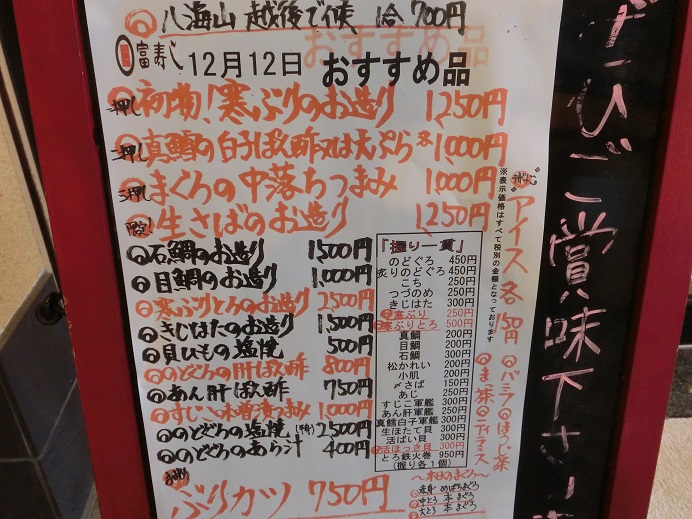 八海山 越後で候 1合 700円
富寿し 12月12日 おすすめ品
一押し 初物!寒ぶりのお造り 1,250円
二押し 真鱈の白子ぽん酢又は天ぷら 各1,000円
三押し まぐろの中落ちつまみ 1,000円
限定! 生さばのお造り 1250円
石鯛のお造り 1500円
目鯛のお造り 1,000円
寒ぶりとろのお造り 2500円
きじはたのお造り 1,500円
貝ひもの塩焼 500円
のどぐろの肝ぽん酢 800円
あん肝ぽん酢 750円
すじこ味噌漬つまみ 1,000円
のどぐろの塩焼(半身) 2,500円
のどぐろのあら汁 400円
ぶりカツ 750円
『握り一貫』
のどぐろ 450円
炙りのどぐろ 450円
こち 250円
つづのめ 250円
きじはた 300円
寒ぶり 250円
寒ぶりとろ 500円
真鯛 200円
目鯛 200円
石鯛 300円
松かれい 200円
小肌 200円
〆さば 150円
あじ 250円
すじこ軍艦 300円
あん肝軍艦 250円
真鱈白子軍艦 300円
生ほたて貝 300円
活ばい貝 300円
活ほっき貝 300円
とろ鉄火巻 950円
(握り各1個)
〜本日のまぐろ〜
赤身 めばちまぐろ
中とろ 本まぐろ
大とろ 本まぐろ
※表示価格はすべて税別の金額となっております
アイス 各150円
バニラ ほうじ茶
ま茶 ティラミス
ぜひご賞味下さい